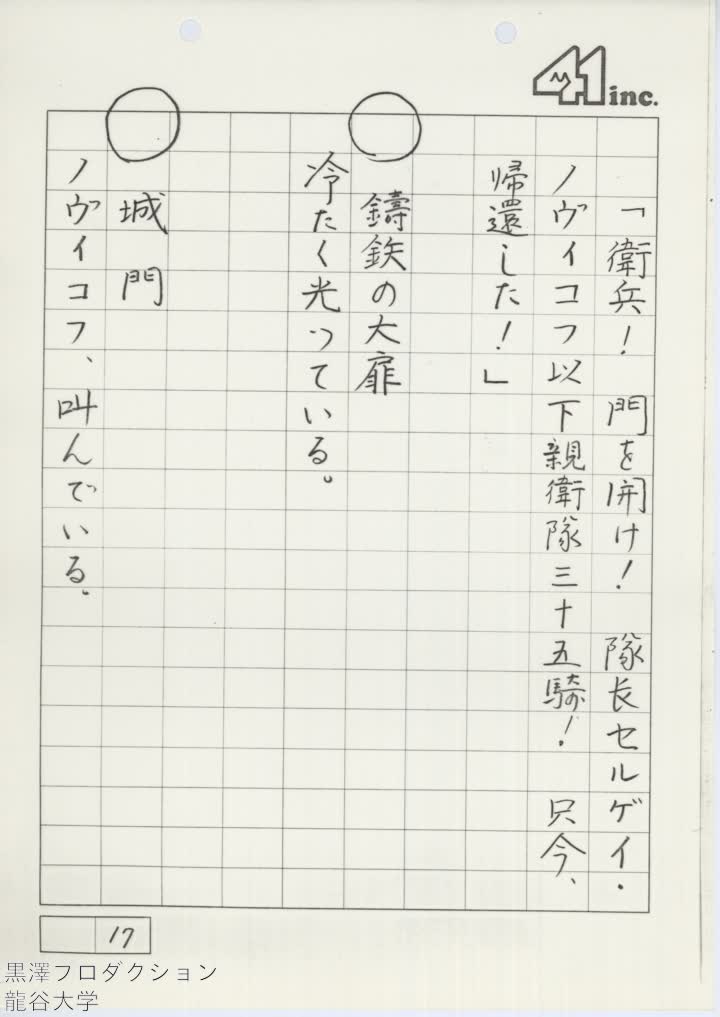 41 inc.
「衛兵！　門を開け！　隊長セルゲイ・
ノヴイコフ以下親衛隊三十五騎！　只今、
帰還した！」
○　鋳鉄の大扉
冷たく光っている。
○　城門
ノヴイコフ、叫んでいる。
17
黒澤フロダクション
龍谷大学